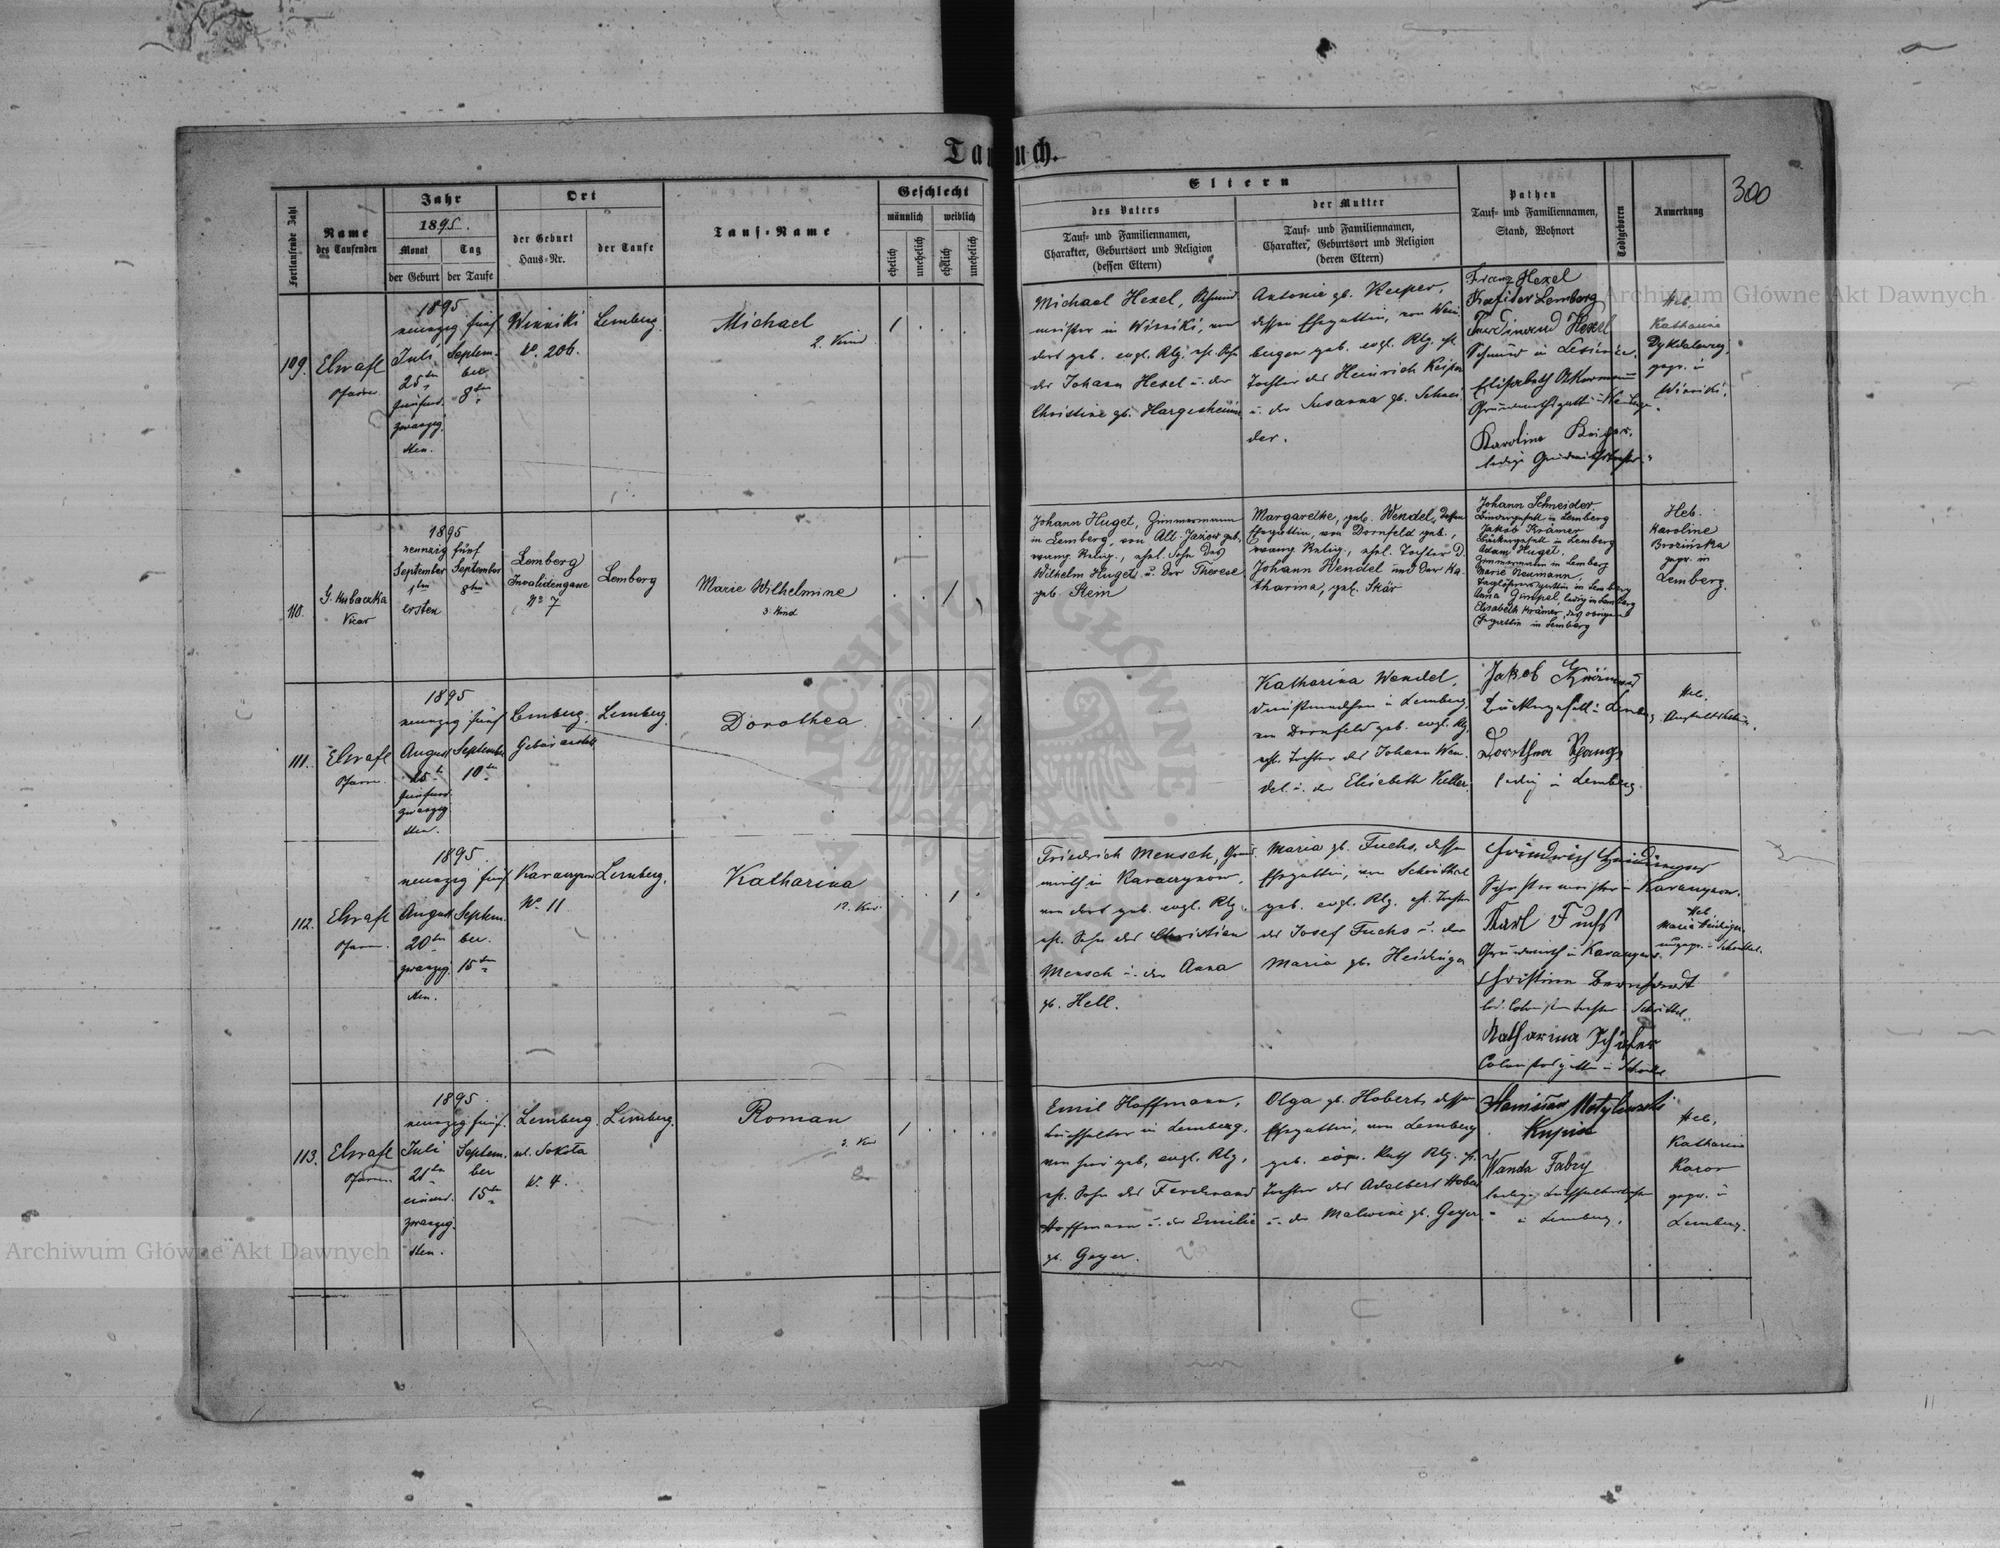 Taufbuch.
300
Fortlaufende Zahl
Name
des Taufenden
Jahr
1895.
Monat
Tag
der Geburt
der Taufe
Ort
der Geburt
Haus-Nr.
der Taufe
Tauf-Name
Geschlecht
männlich
weiblich
ehelich
unehelich
ehelich
unehelich
Eltern
des Vaters
Tauf- und Familiennamen,
Charakter, Geburtsort und Religion
(dessen Eltern)
der Mutter
Tauf- und Familiennamen,
Charakter, Geburtsort und Religion
(deren Eltern)
Pathen
Tauf- und Familiennamen,
Stand, Wohnort
Todtgeboren
Anmerkung
109.
Elwafl
Pfarrer
1895
neunzig fünf
Juli
25ten
fünfund
zwanzig
sten.
Septem-
ber
8ten
Winniki
N. 206.
Lemberg.
Michael
2. Kind
1
Michael Hexel, Schmied
meister in Winniki, von
dort geb. evgl. Rlg. ehl. Sohn
des Johann Hexel u. der
Christine gb. Hargesheimer
Antonie gb. Keiper,
dessen Ehegattin, von Wein
bergen geb. evgl. Rlg. ehl.
Tochter des Heinrich Keiper
u. der Susanna gb. Schnei
der.
Franz Hexel
Lemberg
Ferdinand Hexel
Schmied in Lesienice,
Elisabeth
Karoline
ledige
Heb.
Katharina
gepr. in
Winniki.
110.
G. Kubaczka
Vicar
1895
neunzig fünf
September
1ten
ersten
September
8ten
Lemberg
Invalidengasse
No 7
Lemberg
Marie Wilhelmine
3. Kind
1
Johann Huget, Zimmermann
in Lemberg, von Alt-Jazow geb.
evang. Relig., ehel. Sohn des
Wilhelm Huget u. der Therese
geb. Stein
Margarethe, geb. Wendel, dessen
Ehegattin, von Dornfeld geb.,
evang. Relig., ehel. Tochter d.
Johann Wendel und der Ka-
tharina, geb. Skär
Johann Schneider
Bindergesell in Lemberg
Jakob Krämer
Bäckergesell in Lemberg
Adam Huget,
Zimmermann in Lemberg
Marie Neumann,
Taglöhnersgattin in Lemberg
Anna Gimpel, ledig in Lemberg
Elisabeth Krämer, des obigen
Ehegattin in Lemberg
Heb.
Karoline
Brozińska
gepr. in
Lemberg.
111.
Elwafl
Pfarrer
1895
neunzig fünf
August
25te
fünfund
zwanzig
sten.
September
10ten
Lemberg.
Gebäranstalt
Lemberg.
Dorothea
1
Katharina Wendel,
Dienstmädchen in Lemberg,
von Dornfeld geb. evgl. Rlg.
ehl. Tochter des Johann Wen-
del u. der Elisabeth Keller.
Jakob
Bäckergesell in Lemberg
Dorothea
ledig in Lemberg
Heb.
112.
Elwafl
Pfarrer
1895.
neunzig fünf
August
20ten
zwanzig
sten.
Septem-
ber.
15ten
N. 11
Lemberg.
Katharina
12. Kind
1
Friedrich Mensch, Grund
wirth in
von dort geb. evgl. Rlg.
ehl. Sohn des Christian
Mensch u. der Anna
gb. Hell.
Maria gb. Fuchs, dessen
Ehegattin, von
geb. evgl. Rlg. ehl. Tochter
des Josef Fuchs u. der
Maria gb. Heidinger
Friedrich
Karl Fuchs
Grundwirth in
Christine Bernhardt
Katharina Schäfer
Heb.
Maria Heidinger
113.
Elwafl
Pfarrer
1895.
neunzig fünf
Juli
21ten
einund
zwanzig
sten.
Septem-
ber
15ten
Lemberg.
ul. Sokoła
N. 4.
Lemberg.
Roman
3. Kind
1
Emil Hoffmann,
Buchhalter in Lemberg,
von hier geb. evgl. Rlg.
ehl. Sohn des Ferdinand
Hoffmann u. der Emilie
gb. Geyer.
Olga gb. Hobert, dessen
Ehegattin, von Lemberg
geb. Kath Rlg. ehl.
Tochter des Adalbert Hober
u. der Malwine gb. Geyer.
Stanisław
Kupiec
Wanda Fabry
ledige Buchhalterstochter
in Lemberg.
Heb.
Katharina
gepr. in
Lemberg.
Archiwum Główne Akt Dawnych
Archiwum Główne Akt Dawnych
ARCHIWUM GŁÓWNE AKT DAWNYCH